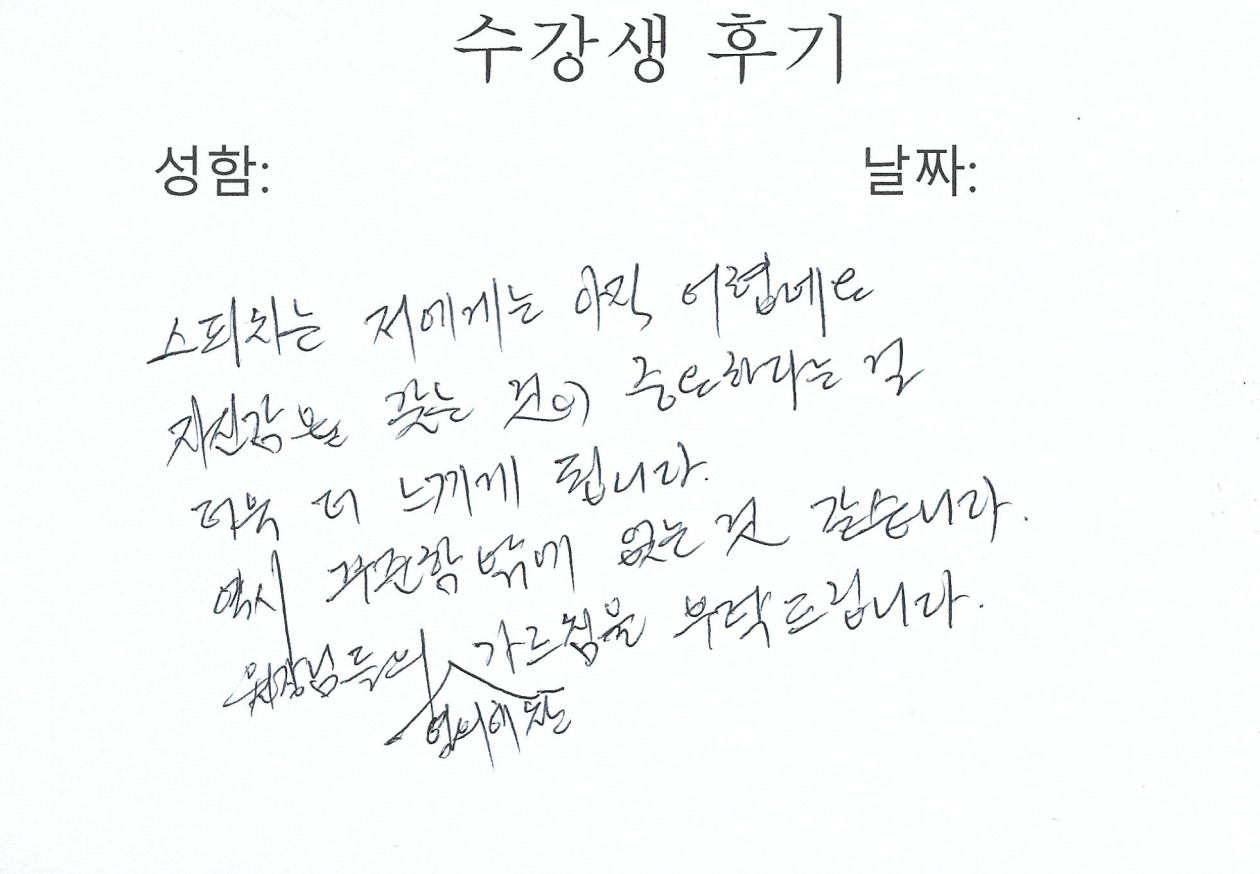 수강생 후기
성함: 날짜:
스피치는 저에게는 아직 어렵네요
자신감을 갖는 것이 중요하다는 걸
더욱 더 느끼게 됩니다.
역시 꾸준함 밖에 없는 것 같습니다.
원장님들의 열의에 찬 가르침을 부탁드립니다.